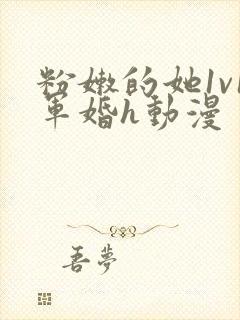 粉嫩的她1v1
军婚h動漫
吾夢